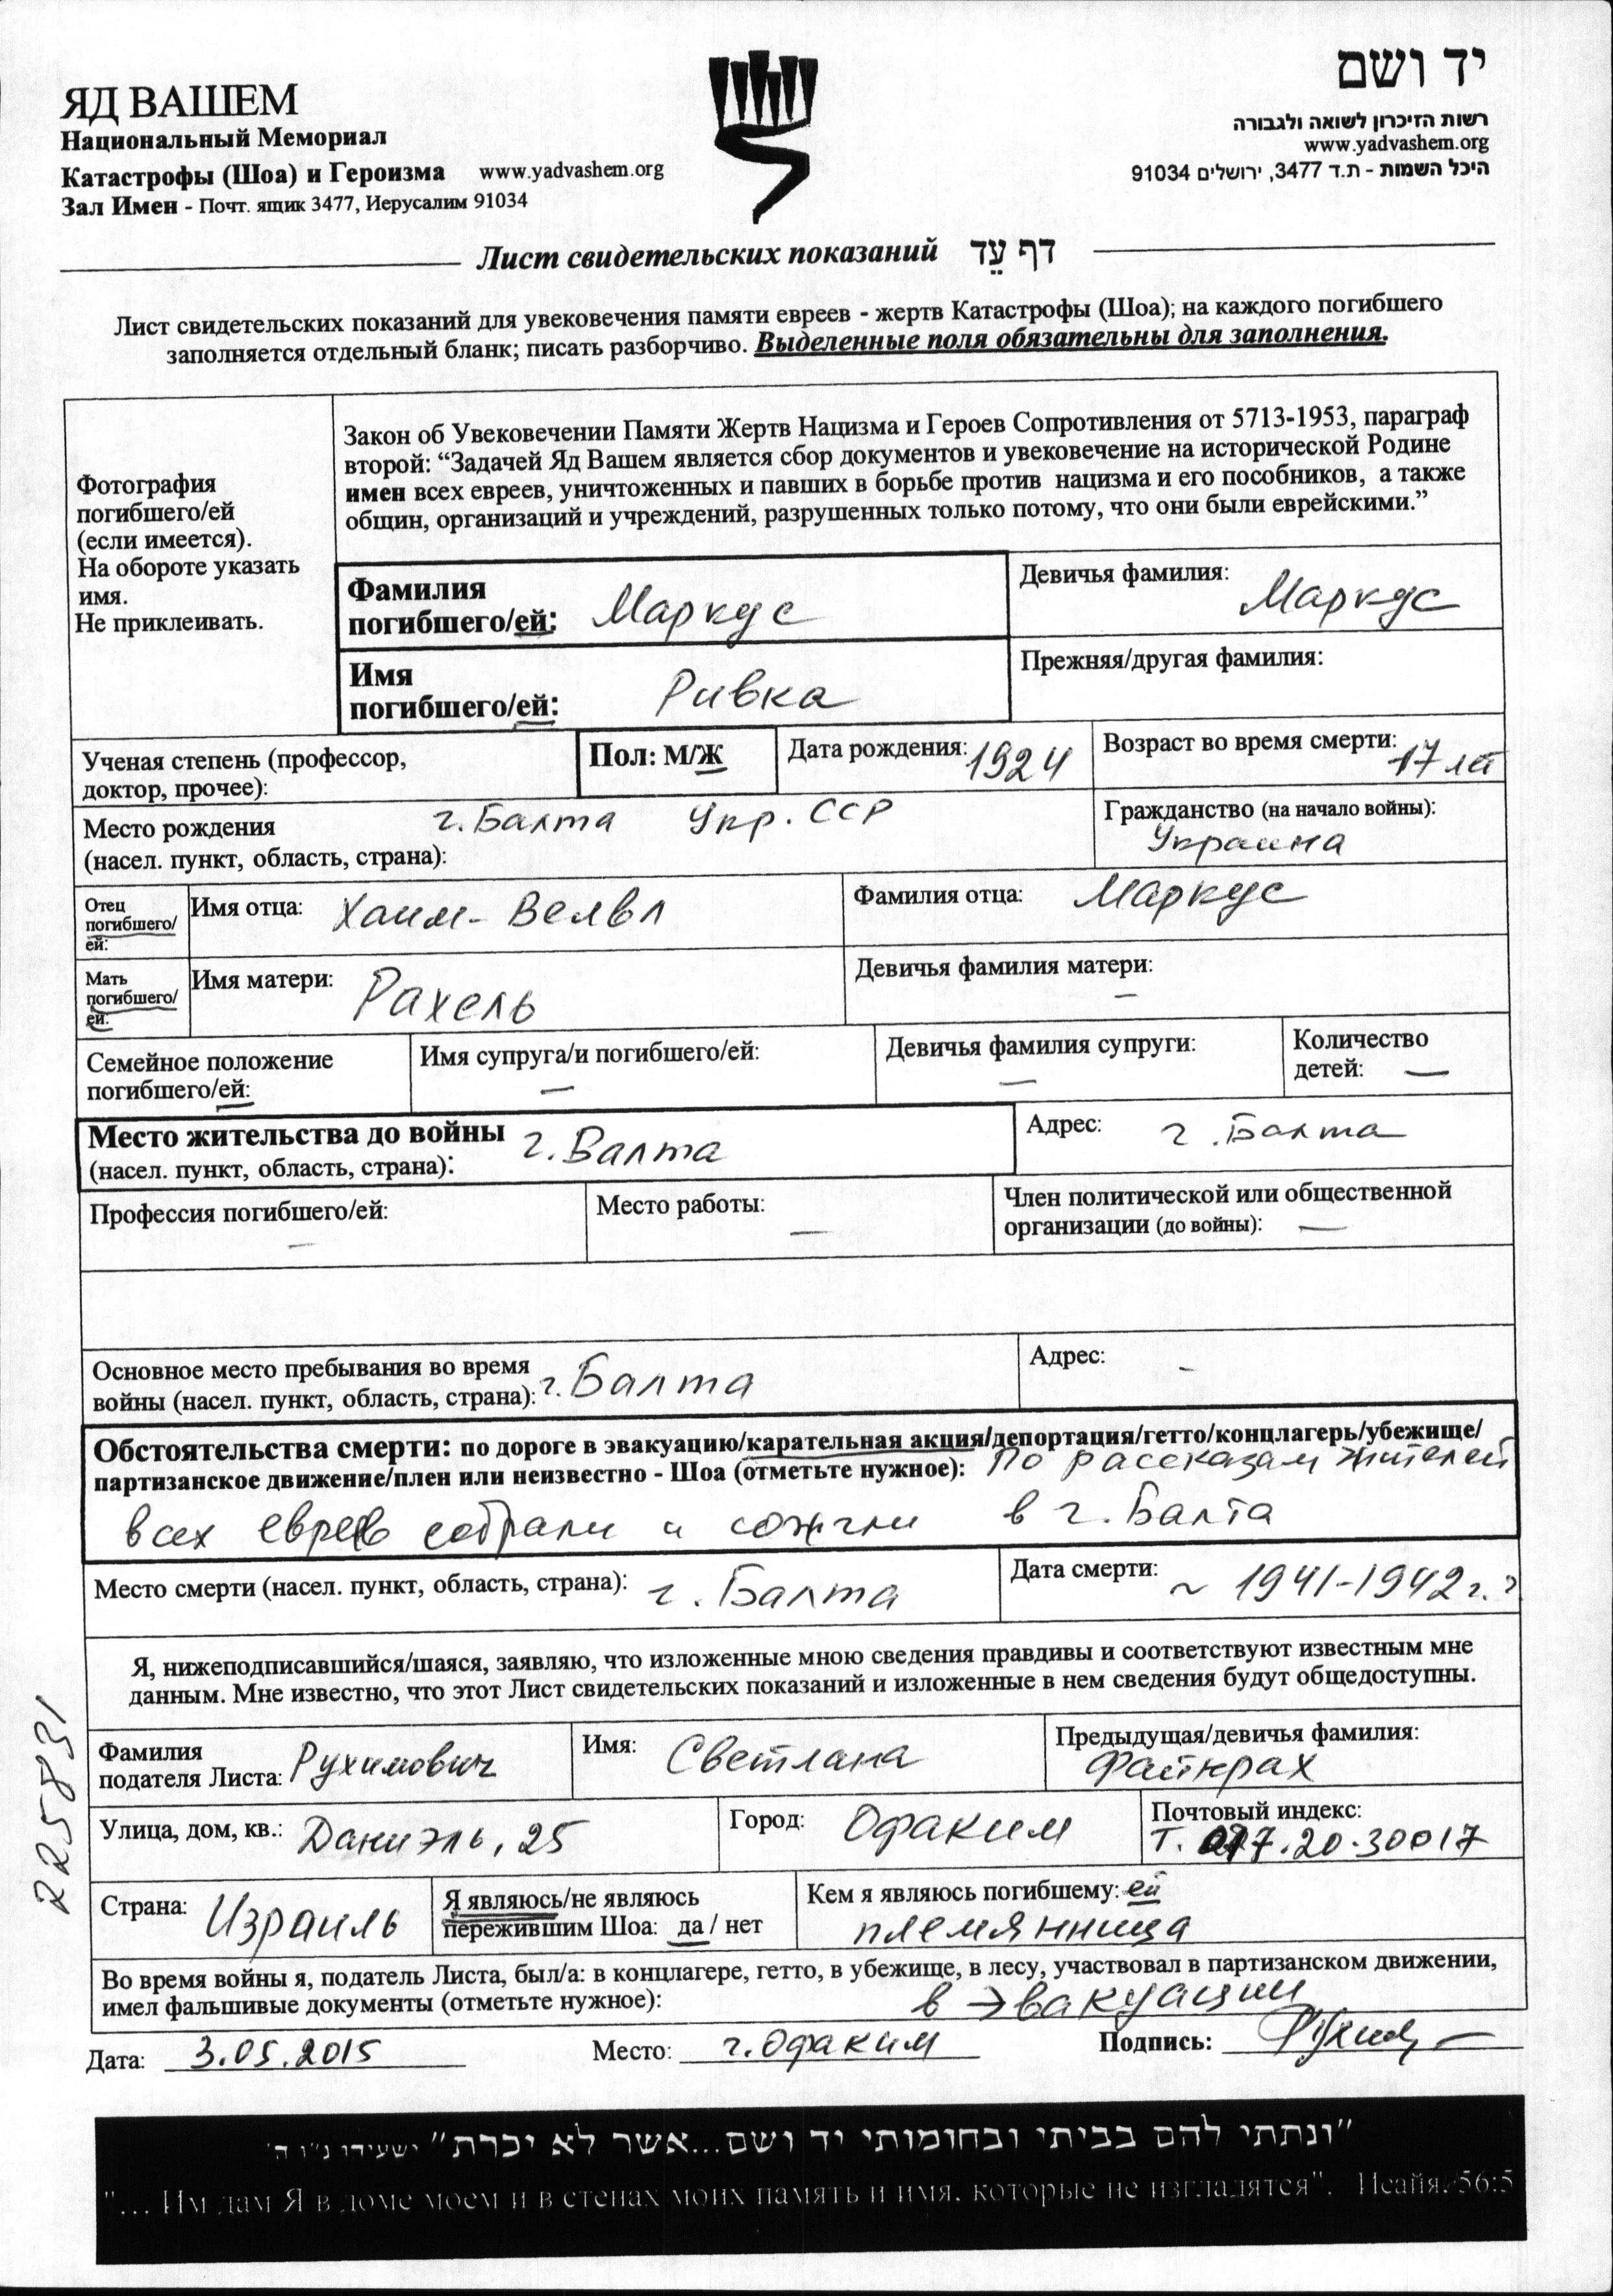 ЯД ВАШЕМ
Национальный Мемориал
Катастрофы (Шоа) и Героизма www.yadvashem.org
Зал Имен - Почт. ящик 3477, Иерусалим 91034
יד ושם
רשות הזיכרון לשואה ולגבורה
www.yadvashem.org
היכל השמות - ת.ד 3477, ירושלים 91034
Лист свидетельских показаний דף עֵד
Лист свидетельских показаний для увековечения памяти евреев - жертв Катастрофы (Шоа); на каждого погибшего
заполняется отдельный бланк; писать разборчиво. Выделенные поля обязательны для заполнения.
Фотография
погибшего/ей
(если имеется).
На обороте указать
имя.
Не приклеивать.
Закон об Увековечении Памяти Жертв Нацизма и Героев Сопротивления от 5713-1953, параграф
второй: “Задачей Яд Вашем является сбор документов и увековечение на исторической Родине
имен всех евреев, уничтоженных и павших в борьбе против нацизма и его пособников, а также
общин, организаций и учреждений, разрушенных только потому, что они были еврейскими.”
Фамилия
погибшего/ей: Маркус
Девичья фамилия: Маркус
Имя
погибшего/ей: Ривка
Прежняя/другая фамилия:
Ученая степень (профессор,
доктор, прочее):
Пол: М/Ж
Дата рождения: 1924
Возраст во время смерти: 17 лет
Место рождения г. Балта Укр. ССР
(насел. пункт, область, страна):
Гражданство (на начало войны):
Украина
Отец
погибшего/
ей:
Имя отца: Хаим-Велвл
Фамилия отца: Маркус
Мать
погибшего/
ей:
Имя матери: Рахель
Девичья фамилия матери: –
Семейное положение
погибшего/ей:
Имя супруга/и погибшего/ей: –
Девичья фамилия супруги: –
Количество
детей: –
Место жительства до войны г. Балта
(насел. пункт, область, страна):
Адрес: г. Балта
Профессия погибшего/ей: –
Место работы: –
Член политической или общественной
организации (до войны): –
Основное место пребывания во время
войны (насел. пункт, область, страна): г. Балта
Адрес: –
Обстоятельства смерти: по дороге в эвакуацию/карательная акция/депортация/гетто/концлагерь/убежище/
партизанское движение/плен или неизвестно - Шоа (отметьте нужное): По рассказам жителей
всех евреев собрали и сожгли в г. Балта
Место смерти (насел. пункт, область, страна): г. Балта
Дата смерти: ~ 1941-1942 г. ?
Я, нижеподписавшийся/шаяся, заявляю, что изложенные мною сведения правдивы и соответствуют известным мне
данным. Мне известно, что этот Лист свидетельских показаний и изложенные в нем сведения будут общедоступны.
Фамилия
подателя Листа: Рухимович
Имя: Светлана
Предыдущая/девичья фамилия:
Файнрах
Улица, дом, кв.: Даниэль, 25
Город: Офаким
Почтовый индекс:
Т. 077.20-30017
Страна: Израиль
Я являюсь/не являюсь
пережившим Шоа: да / нет
Кем я являюсь погибшему: ей
племянница
Во время войны я, податель Листа, был/а: в концлагере, гетто, в убежище, в лесу, участвовал в партизанском движении,
имел фальшивые документы (отметьте нужное): в эвакуации
Дата: 3.05.2015 Место: г. Офаким Подпись:
225831
"ונתתי להם בביתי ובחומותי יד ושם...אשר לא יכרת" ישעיהו נ"ו ה'
"... Им дам Я в доме моем и в стенах моих память и имя, которые не изгладятся". Исайя, 56:5